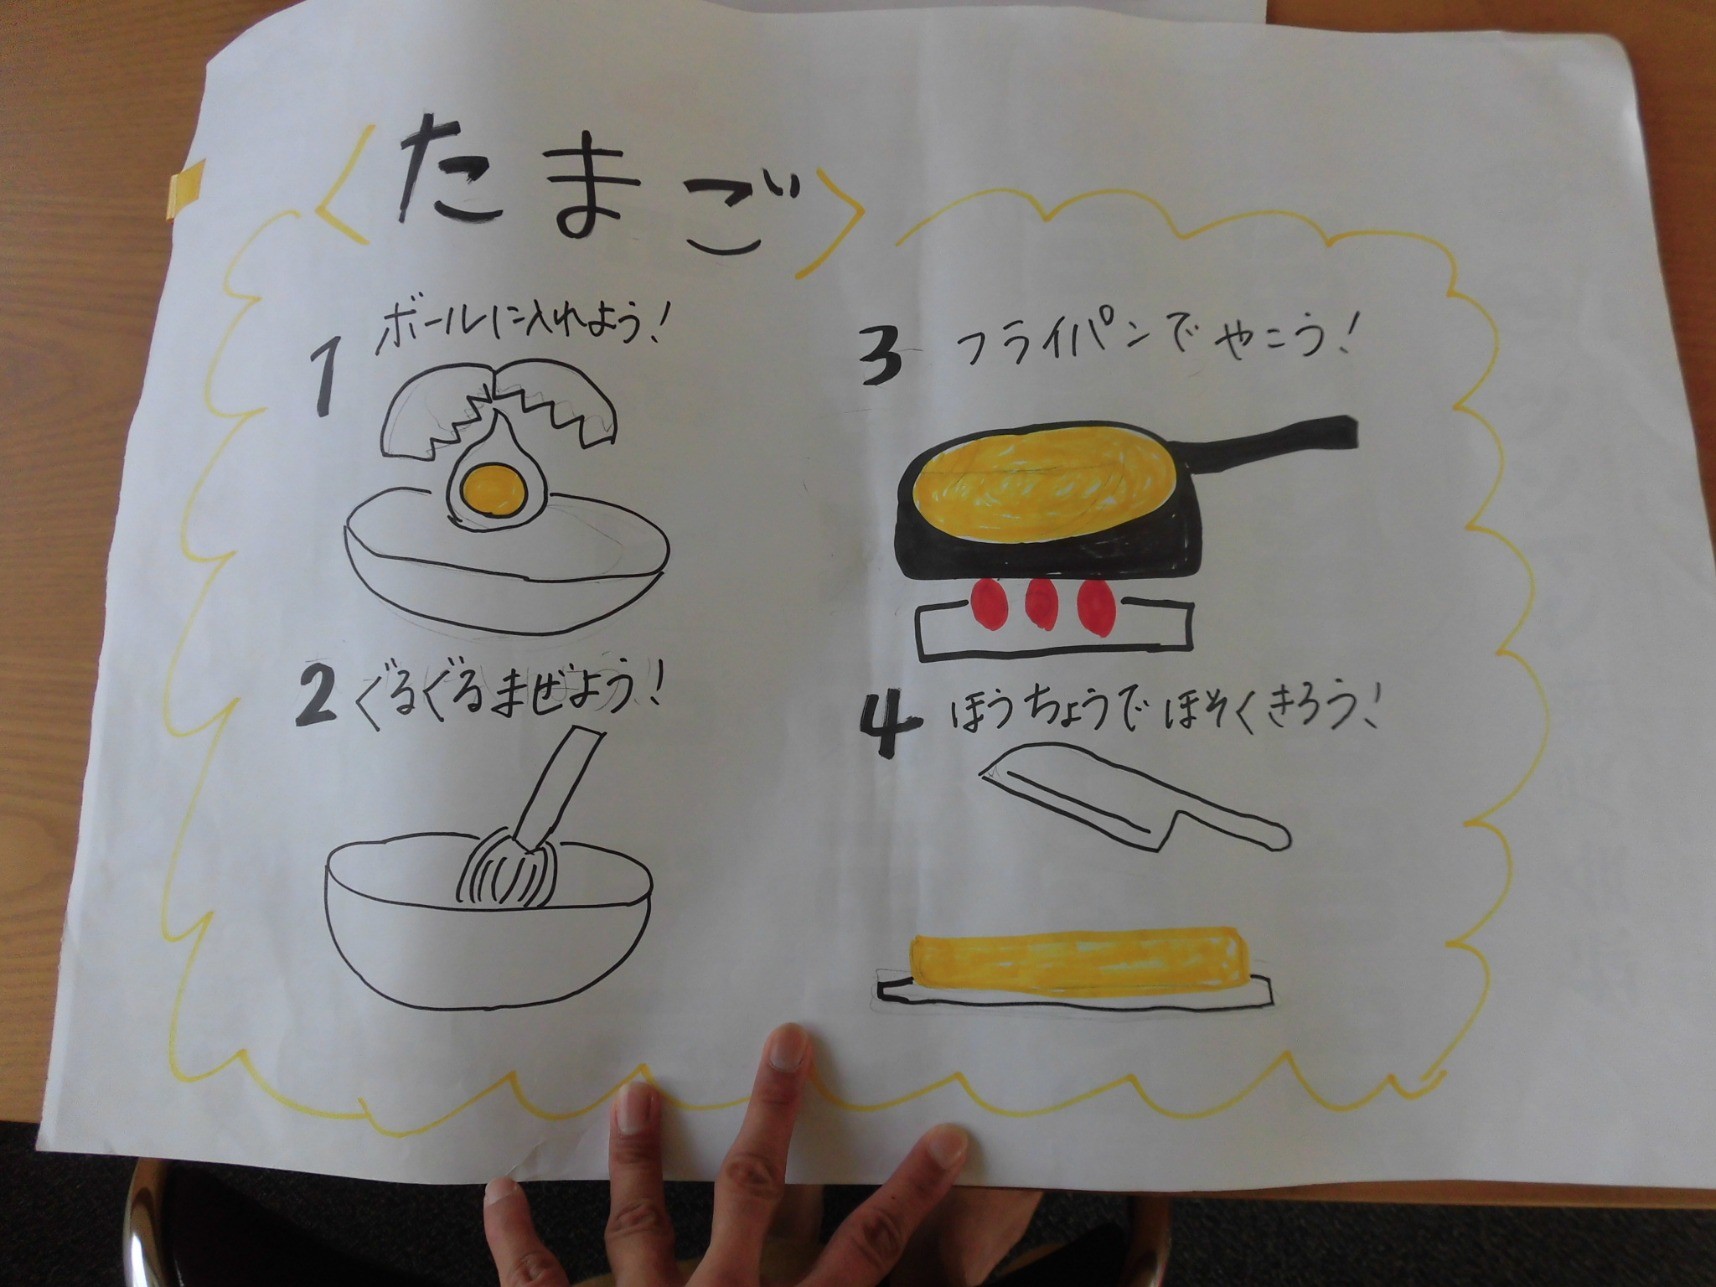 〈たまご〉
1 ボールに入れよう!
2 ぐるぐるまぜよう!
3 フライパンでやこう!
4 ほうちょうでほそくきろう!